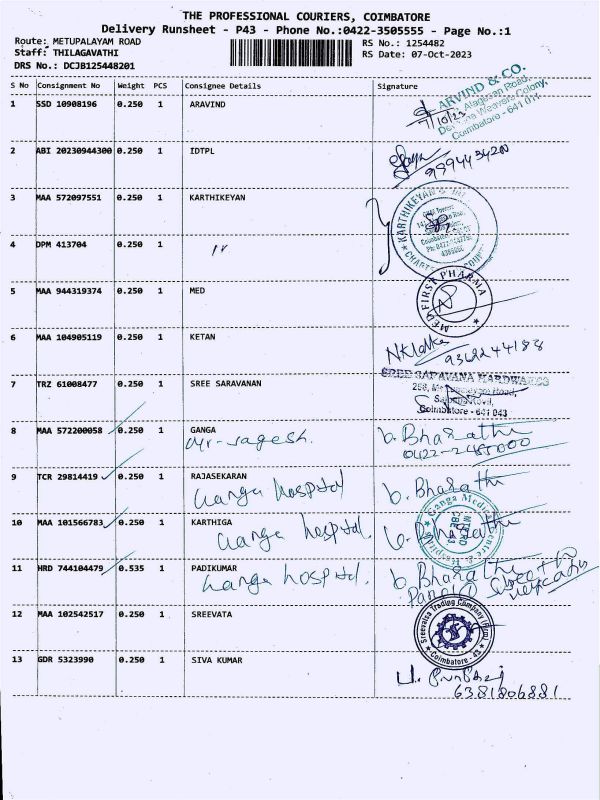 THE PROFESSIONAL COURIERS, COIMBATORE
Delivery Runsheet - P43 - Phone No.:0422-3505555 - Page No.:1
Route: METUPALAYAM ROAD
Staff: THILAGAVATHI
DRS No.: DCJB125448201
RS No.: 1254482
RS Date: 07-Oct-2023
S No Consignment No Weight PCS Consignee Details Signature
1 SSD 10908196 0.250 1 ARAVIND
ARVIND & CO.
Alagesan Road,
Weavers Colony,
Coimbatore - 641 011
7/10/23
2 ABI 20230944300 0.250 1 IDTPL
9994434200
3 MAA 572097551 0.250 1 KARTHIKEYAN
KARTHIKEYAN &
4 DPM 413704 0.250 1
5 MAA 944319374 0.250 1 MED
MED FIRST PHARMA
6 MAA 104905119 0.250 1 KETAN
9362244188
7 TRZ 61008477 0.250 1 SREE SARAVANAN
SREE SARAVANA HARDWARES
Coimbatore - 641 043
8 MAA 572200058 0.250 1 GANGA
b. Bharathi
0422-2485000
9 TCR 29814419 0.250 1 RAJASEKARAN
Ganga hospital
b. Bharathi
10 MAA 101566783 0.250 1 KARTHIGA
Ganga hospital.
b. Bharathi
11 HRD 744104479 0.535 1 PADIKUMAR
Ganga hospital.
b. Bharathi
12 MAA 102542517 0.250 1 SREEVATA
Sreevatsa Trading Company (Firm)
Coimbatore - 43
13 GDR 5323990 0.250 1 SIVA KUMAR
6381806881